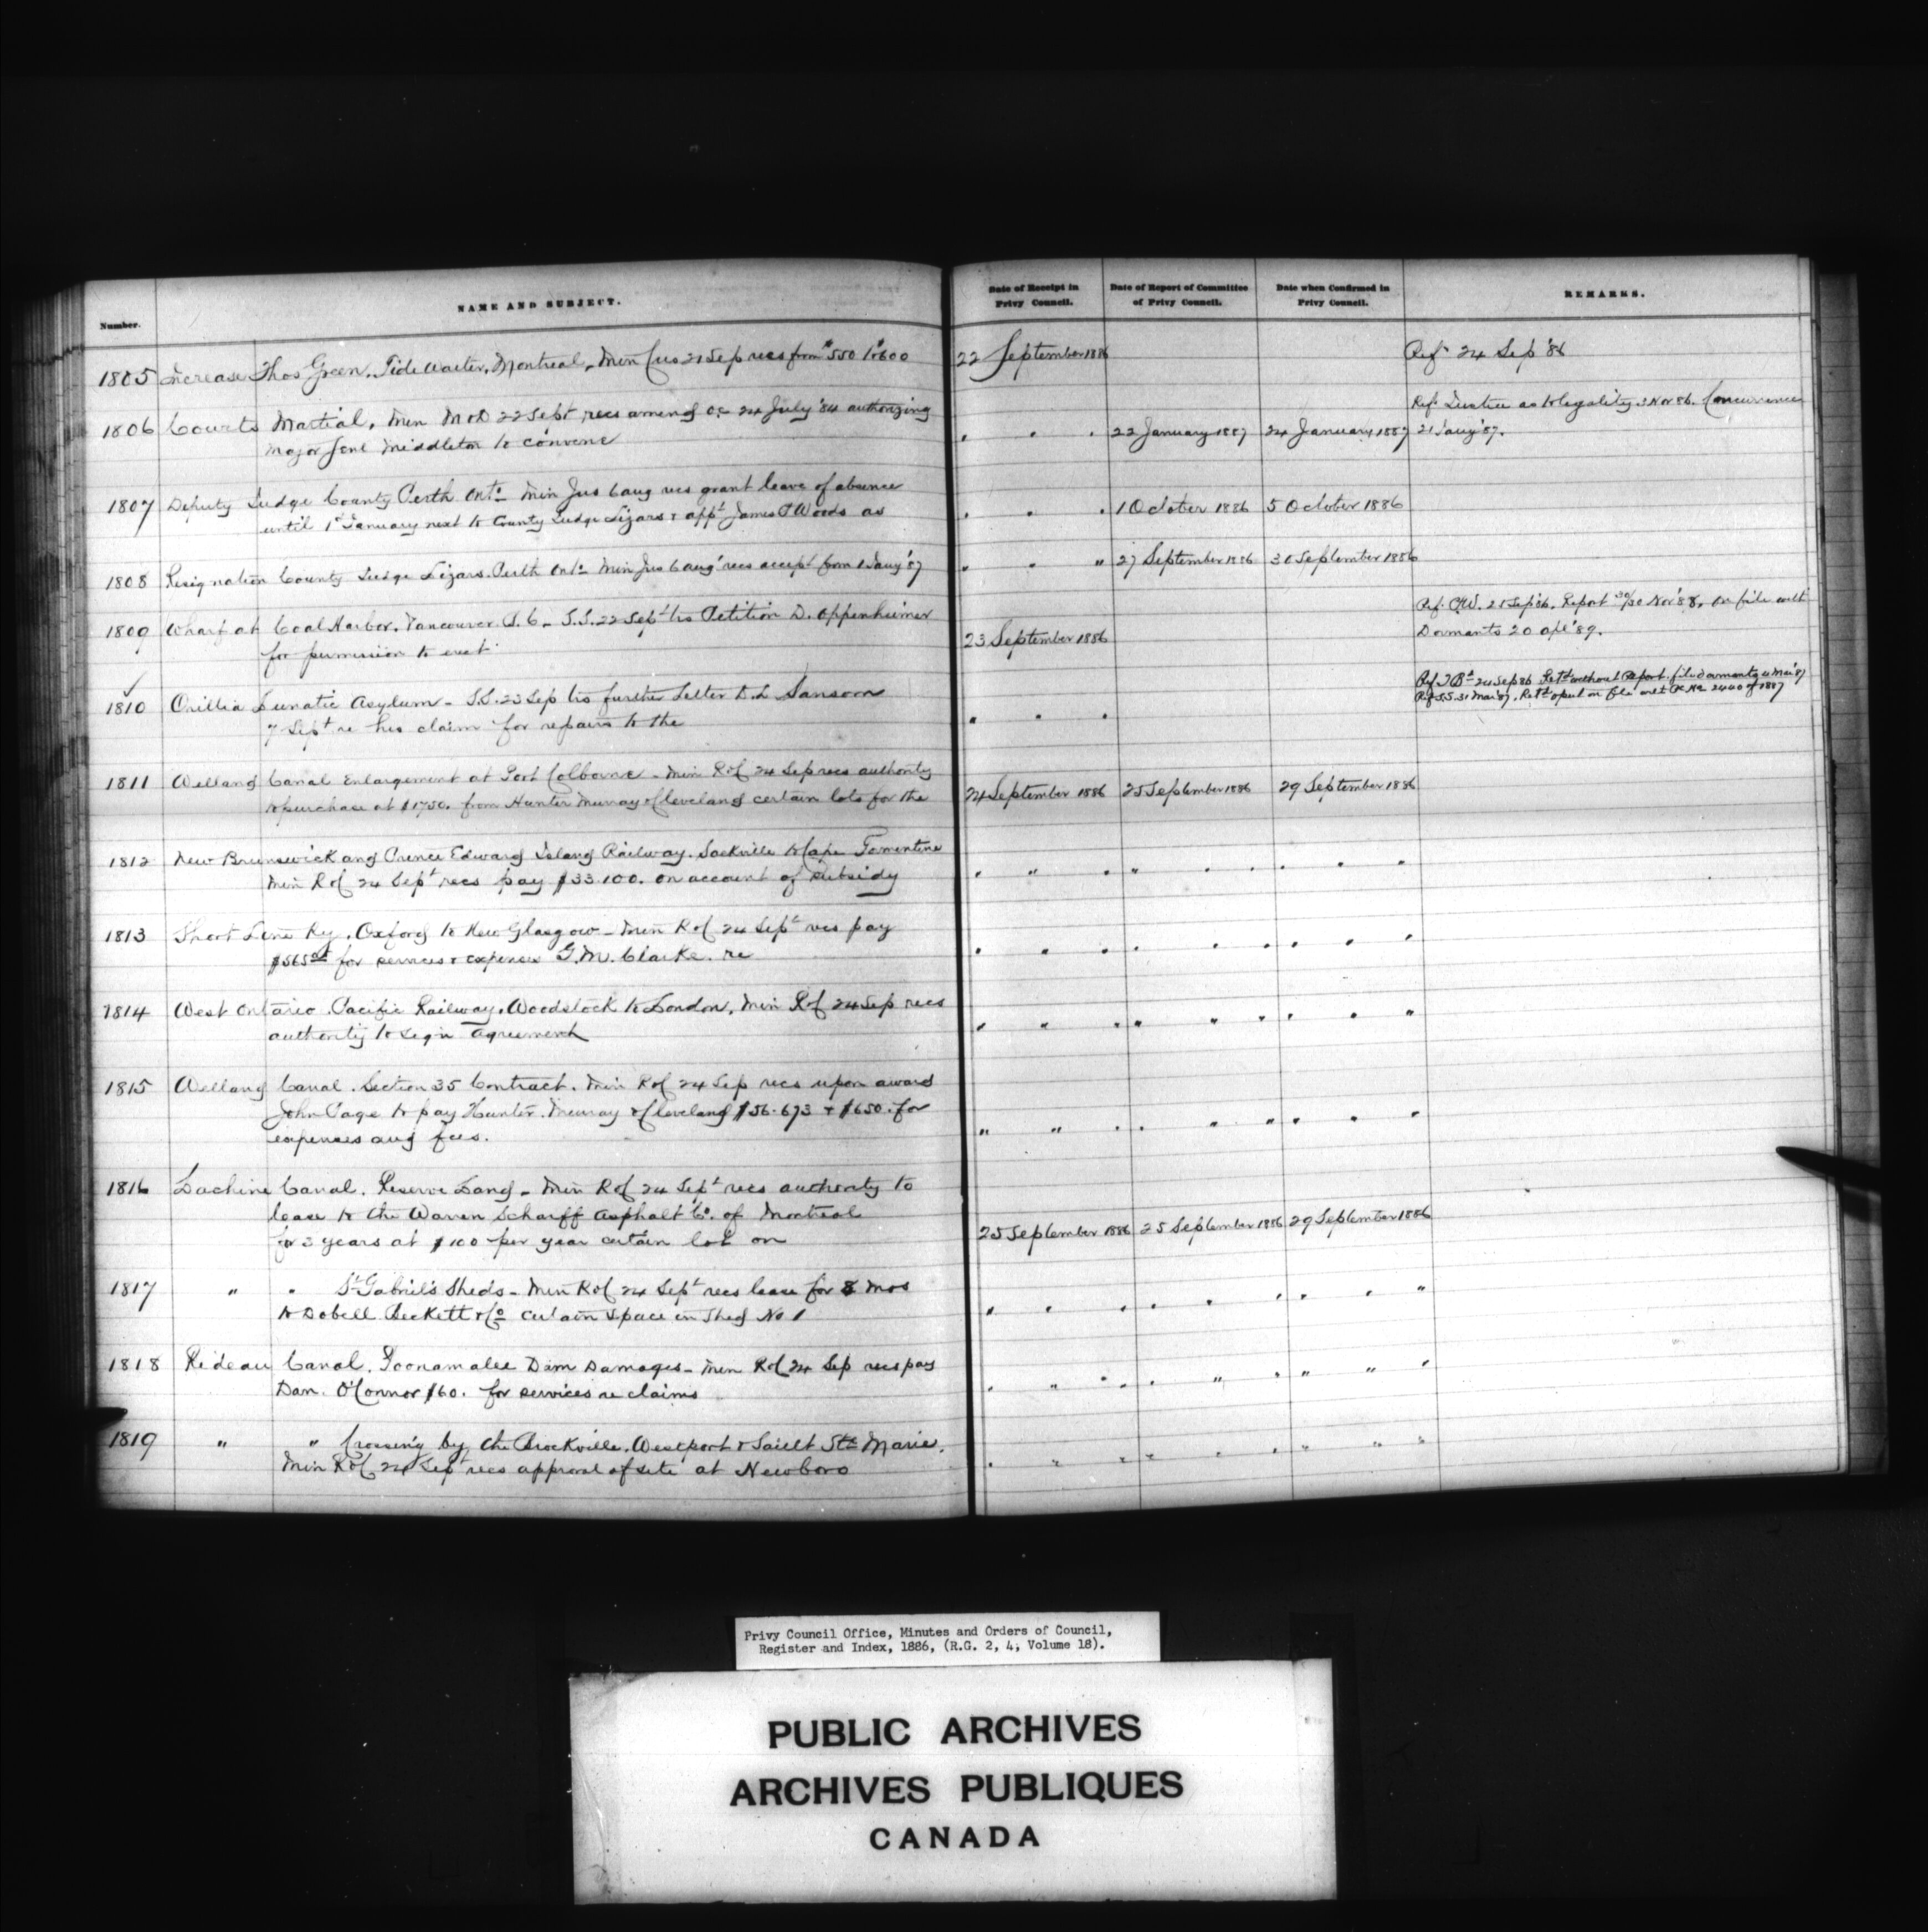 Number.
NAME AND SUBJECT.
Date of Receipt in
Privy Council.
Date of Report of Committee
of Privy Council.
Date when Confirmed in
Privy Council.
REMARKS.
1805 Increase Thos Green, Tide Waiter, Montreal, Min Cus 21 Sep recs from $550 to $600 22 September 1886 Ref 24 Sep '86
1806 Courts Martial. Min M&D 22 Sept recs amendg OC 24 July '84 authorizing
Major Genl Middleton to convene " " " 22 January 1887 24 January 1887
Ref Justice as to legality 3 Nov 86. Concurrence
21 Jany '87.
1807 Deputy Judge County Perth Onto Min Jus 6 Aug recs grant leave of absence
until 1st January next to County Judge Lizars & appt James P Woods as " " " 1 October 1886 5 October 1886
1808 Resignation County Judge Lizars. Perth Onto Min Jus 6 Aug recs accept from 1 Jany '87 " " " 27 September 1886 30 September 1886
1809 Wharf at Coal Harbor. Vancouver B.C. S.S. 22 Sept trs Petition D. Oppenheimer
for permission to erect 23 September 1886
Ref P.W. 25 Sep 86. Report 30 Nov '88. On file with
Dormants 20 Apl '89.
1810 Orillia Lunatic Asylum - S.S. 23 Sep trs further Letter
Sansom
7 Sept re his claim for repairs to the " " "
Ref T.Bd 24 Sep 86 Retd without Report. file dormants 4 Mar '87
Ref S.S. 31 Mar '87. Retd
on file with PC No 2440 of 1887
1811 Welland Canal Enlargement at Port Colborne - Min R&C 24 Sep recs authority
to purchase at $1750. from Hunter Murray & Cleveland certain lots for the 24 September 1886 25 September 1886 29 September 1886
1812 New Brunswick and Prince Edward Island Railway. Sackville to Cape Tormentine
Min R&C 24 Sept recs pay $33.100. on account of subsidy " " " " " " " " "
1813 Short Line Ry. Oxford to New Glasgow - Min R&C 24 Sept recs pay
$565 for services & expenses G.M. Clarke. re " " " " " " " " "
1814 West Ontario Pacific Railway. Woodstock to London, Min R&C 24 Sep recs
authority to sign agreement " " " " " " " " "
1815 Welland Canal. Section 35 Contract. Min R&C 24 Sep recs upon award
John Page to pay Hunter Murray & Cleveland $56.673 & $650. for
expenses and fees. " " " " " " " " "
1816 Lachine Canal. Reserve Land - Min R&C 24 Sept recs authority to
lease to the Warren Scharff Asphalt Co. of Montreal
for 3 years at $100 per year certain lot on 25 September 1886 25 September 1886 29 September 1886
1817 " " St Gabriel's Sheds - Min R&C 24 Sept recs lease for 8 mos
to Dobell Beckett & Co certain space in Shed No 1 " " " " " " " " "
1818 Rideau Canal. Poonamalee Dam Damages - Min R&C 24 Sep recs pay
Dan. O'Connor $60. for services re claims " " " " " " " " "
1819 " " Crossing by the Brockville. Westport & Sault Ste Marie.
Min R&C 24 Sept recs approval of site at Newboro " " " " " " " " "
Privy Council Office, Minutes and Orders of Council,
Register and Index, 1886, (R.G. 2, 4, Volume 18).
PUBLIC ARCHIVES
ARCHIVES PUBLIQUES
CANADA